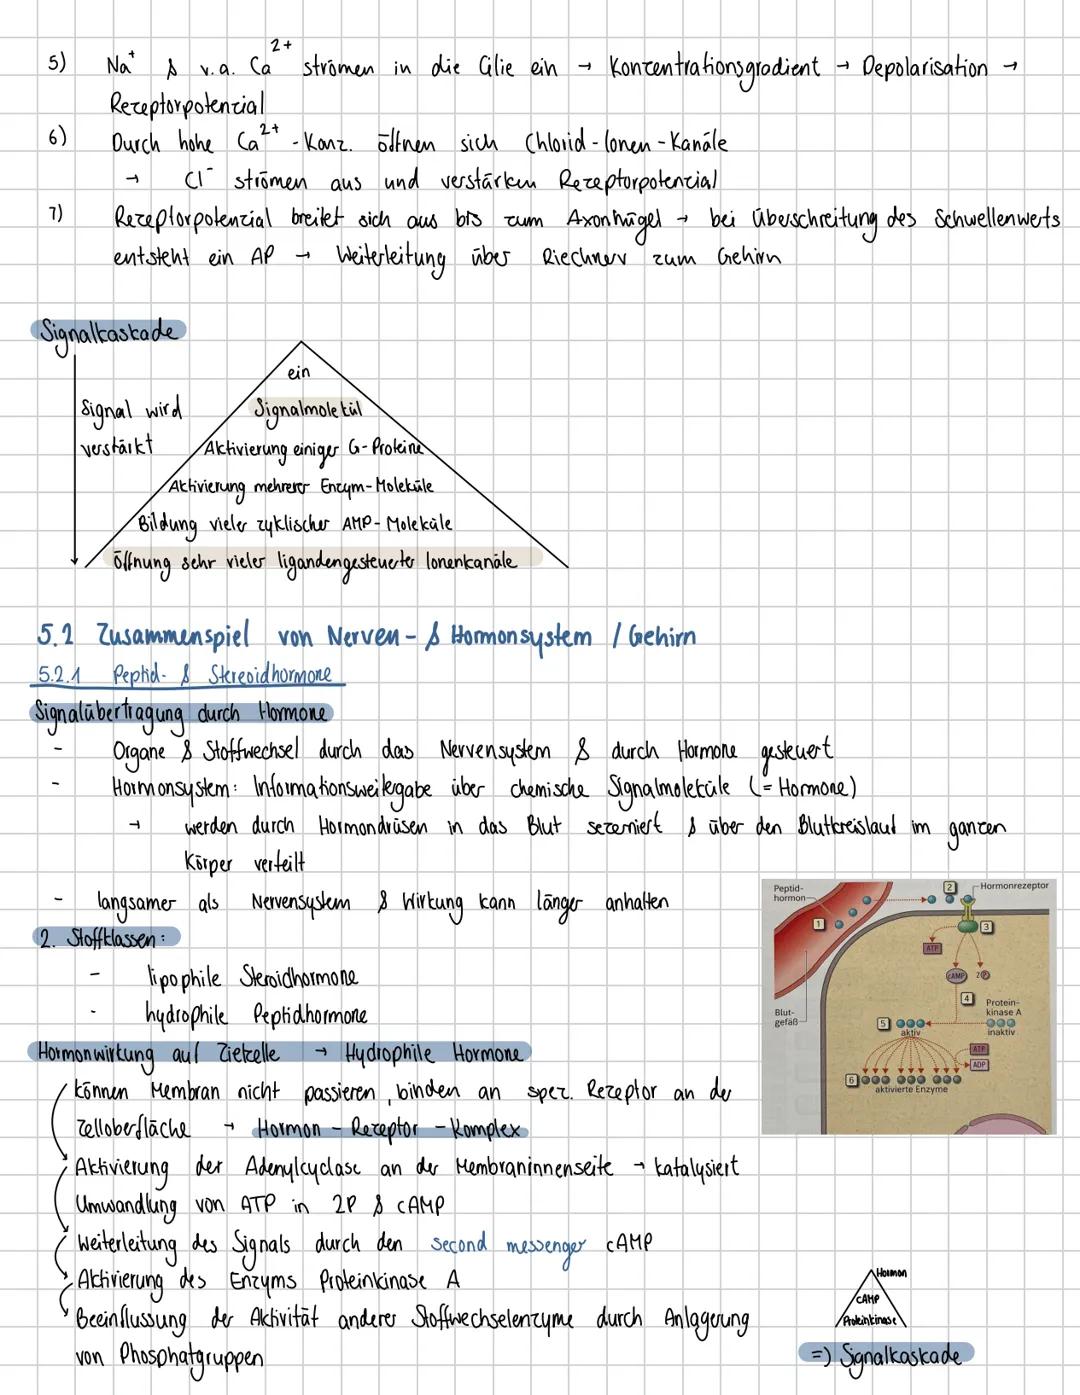 5) Na⁺ & v.a. Ca²⁺ strömen in die Cilie ein → Konzentrationsgradient → Depolarisation →
Rezeptorpotenzial
6) Durch hohe Ca²⁺-Konz. öffnen sich Chlorid-Ionen-Kanäle
→ Cl⁻ strömen aus und verstärken Rezeptorpotenzial
7) Rezeptorpotenzial breitet sich aus bis zum Axonhügel → bei Überschreitung des Schwellenwerts
entsteht ein AP → Weiterleitung über Riechnerv zum Gehirn
Signalkaskade
ein
Signal wird
Signalmolekül
verstärkt
Aktivierung einiger G-Proteine
Aktivierung mehrerer Enzym-Moleküle
Bildung vieler zyklischer AMP-Moleküle
Öffnung sehr vieler ligandengesteuerter Ionenkanäle
5.2 Zusammenspiel von Nerven- & Hormonsystem / Gehirn
5.2.1 Peptid- & Stereoidhormone
Signalübertragung durch Hormone
- Organe & Stoffwechsel durch das Nervensystem & durch Hormone gesteuert
- Hormonsystem: Informationsweitergabe über chemische Signalmoleküle (= Hormone)
→ werden durch Hormondrüsen in das Blut sezerniert & über den Blutkreislauf im ganzen
Körper verteilt
- langsamer als Nervensystem & Wirkung kann länger anhalten
2. Stoffklassen:
- lipophile Steroidhormone
- hydrophile Peptidhormone
Hormonwirkung auf Zielzelle → Hydrophile Hormone
können Membran nicht passieren, binden an spez. Rezeptor an der
Zelloberfläche → Hormon - Rezeptor - Komplex
Aktivierung der Adenylcyclase an der Membraninnenseite → katalysiert
Umwandlung von ATP in 2P & cAMP
Weiterleitung des Signals durch den second messenger cAMP
Aktivierung des Enzyms Proteinkinase A
Beeinflussung der Aktivität anderer Stoffwechselenzyme durch Anlagerung
von Phosphatgruppen
Peptid-
hormon
1
2
Hormonrezeptor
3
ATP
cAMP
2 P
4
Blut-
gefäß
Protein-
kinase A
5
aktiv
inaktiv
ATP
ADP
6
aktivierte Enzyme
Hormon
cAMP
Proteinkinase
=) Signalkaskade